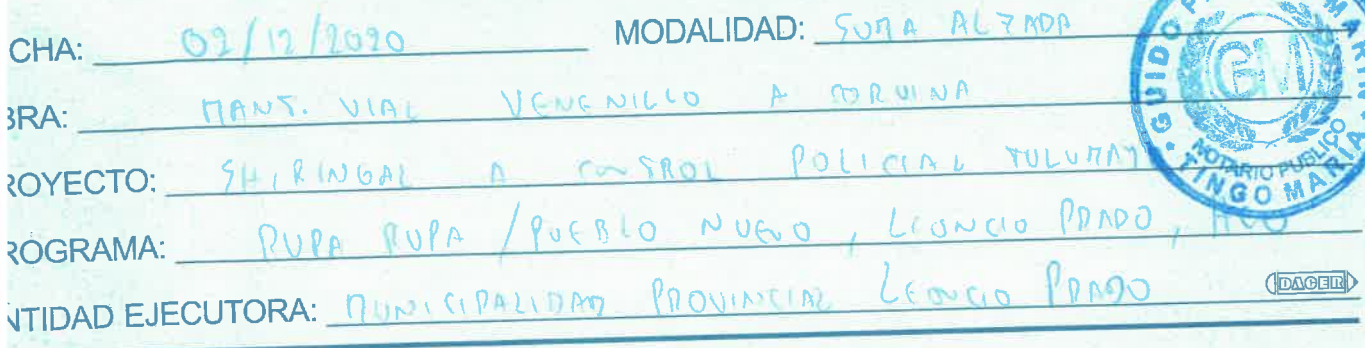 CHA: 02/12/2020 MODALIDAD: SUMA ALZADA
BRA: MANT. VIAL VENENILLO A CORVINA
ROYECTO: SHIRINGAL A CONTROL POLICIAL TULUMAY
ROGRAMA: RUPA RUPA / PUEBLO NUEVO, LEONCIO PRADO, HCO
NTIDAD EJECUTORA: MUNICIPALIDAD PROVINCIAL LEONCIO PRADO
DAGER
GUIDO
GM
NOTARIO PUBLICO
TINGO MARIA